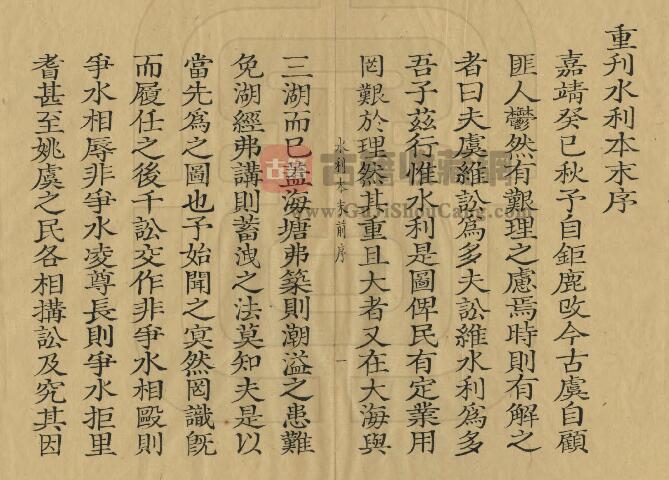 重刊水利本末序
嘉靖癸巳秋予自鉅鹿改令古虞自顧
匪人鬱然有艱理之慮焉時則有解之
者曰夫虞維訟為多夫訟維水利為多
吾子茲行惟水利是圖俾民有定業用
罔艱於理然其重且大者又在大海與
水利本末前序
一
三湖而已蓋海塘弗築則潮溢之患難
免湖經弗講則蓄洩之法莫知夫是以
當先為之圖也予始聞之㝠然罔識旣
而履任之後千訟交作非爭水相毆則
爭水相辱非爭水凌尊長則爭水拒里
耆甚至姚虞之民各相搆訟及究其因
古籍收藏網
www.GuJiShouCang.com